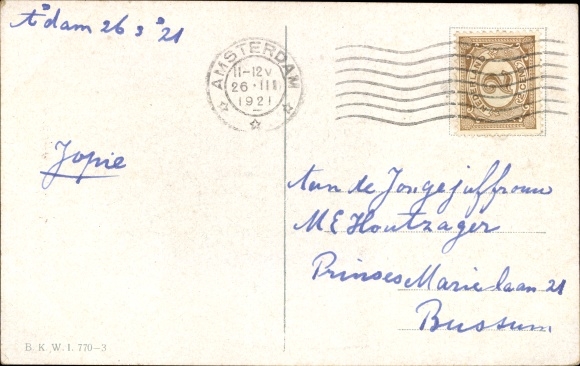 A'dam 26 3 '21
AMSTERDAM
11-12V
26·III
1921
NEDERLAND
2½
Jopie
Aan de Jongejuffrouw
M E Houtzager
Prinses Marielaan 21
Bussum
B. K. W. I. 770-3